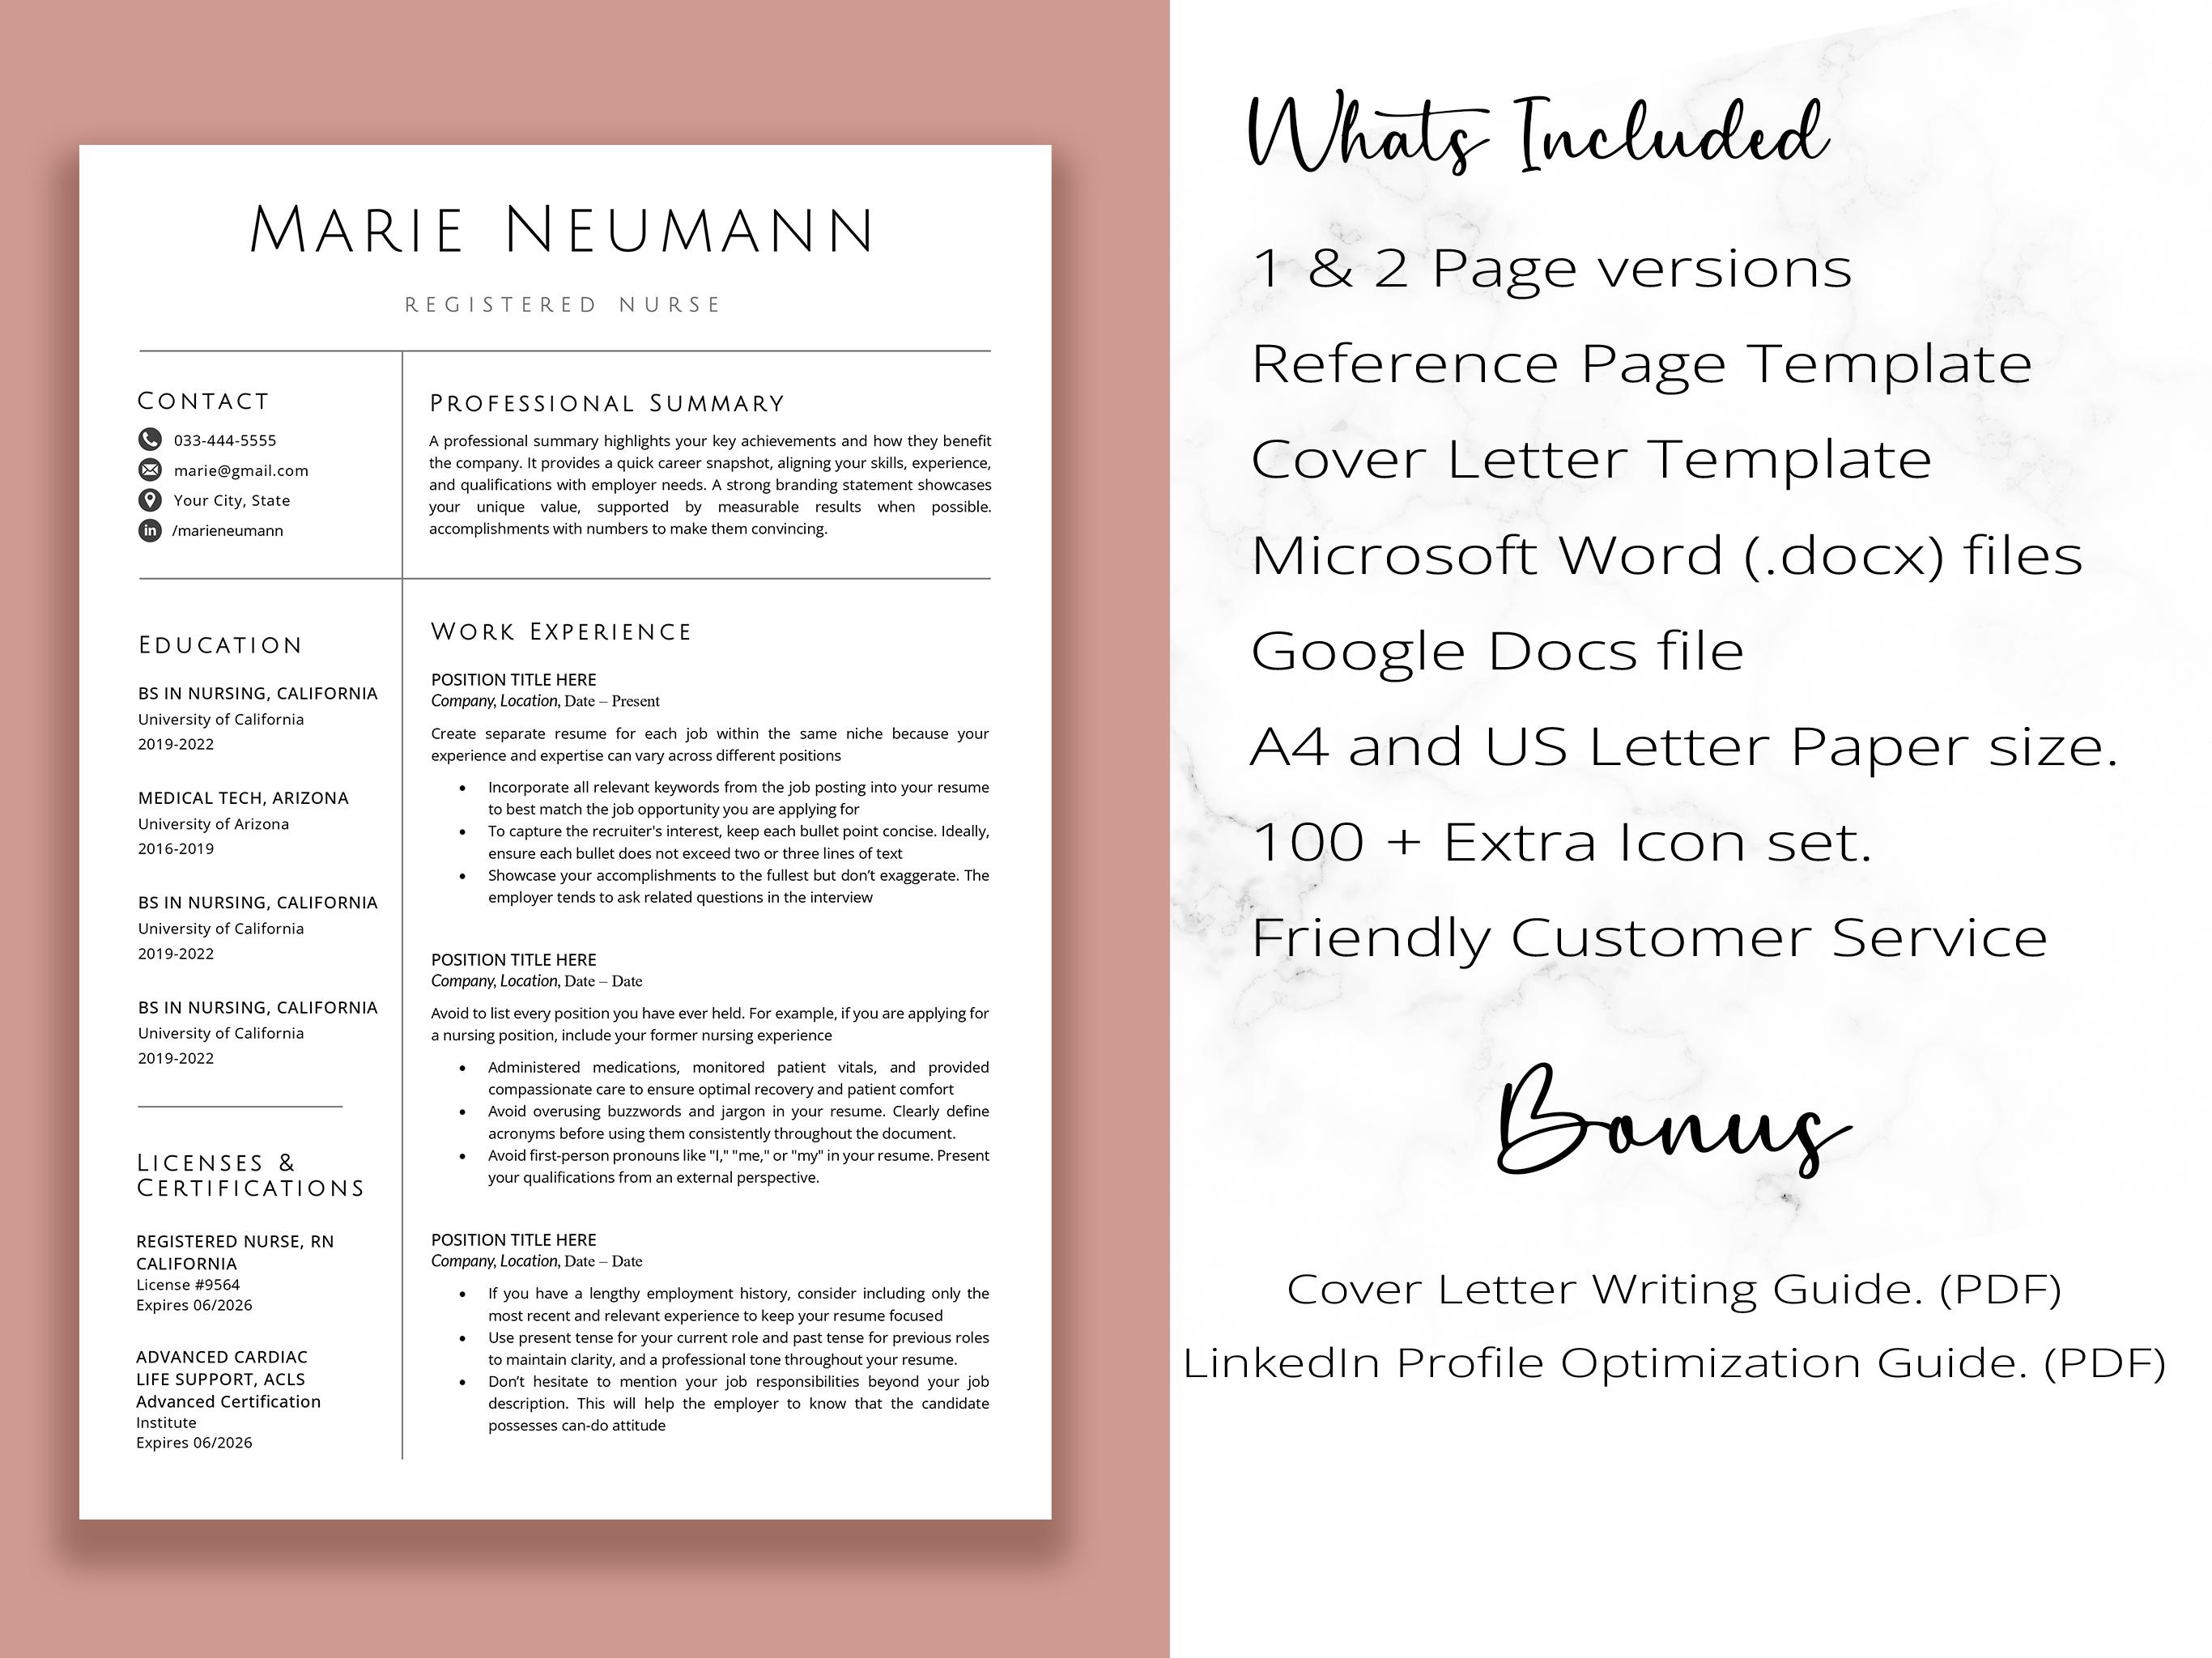 MARIE NEUMANN
REGISTERED NURSE
CONTACT
033-444-5555
marie@gmail.com
Your City, State
in /marieneumann
PROFESSIONAL SUMMARY
A professional summary highlights your key achievements and how they benefit
the company. It provides a quick career snapshot, aligning your skills, experience,
and qualifications with employer needs. A strong branding statement showcases
your unique value, supported by measurable results when possible.
accomplishments with numbers to make them convincing.
EDUCATION
BS IN NURSING, CALIFORNIA
University of California
2019-2022
MEDICAL TECH, ARIZONA
University of Arizona
2016-2019
BS IN NURSING, CALIFORNIA
University of California
2019-2022
BS IN NURSING, CALIFORNIA
University of California
2019-2022
LICENSES &
CERTIFICATIONS
REGISTERED NURSE, RN
CALIFORNIA
License #9564
Expires 06/2026
ADVANCED CARDIAC
LIFE SUPPORT, ACLS
Advanced Certification
Institute
Expires 06/2026
WORK EXPERIENCE
POSITION TITLE HERE
Company, Location, Date – Present
Create separate resume for each job within the same niche because your
experience and expertise can vary across different positions
• Incorporate all relevant keywords from the job posting into your resume
to best match the job opportunity you are applying for
• To capture the recruiter's interest, keep each bullet point concise. Ideally,
ensure each bullet does not exceed two or three lines of text
• Showcase your accomplishments to the fullest but don’t exaggerate. The
employer tends to ask related questions in the interview
POSITION TITLE HERE
Company, Location, Date – Date
Avoid to list every position you have ever held. For example, if you are applying for
a nursing position, include your former nursing experience
• Administered medications, monitored patient vitals, and provided
compassionate care to ensure optimal recovery and patient comfort
• Avoid overusing buzzwords and jargon in your resume. Clearly define
acronyms before using them consistently throughout the document.
• Avoid first-person pronouns like "I," "me," or "my" in your resume. Present
your qualifications from an external perspective.
POSITION TITLE HERE
Company, Location, Date – Date
• If you have a lengthy employment history, consider including only the
most recent and relevant experience to keep your resume focused
• Use present tense for your current role and past tense for previous roles
to maintain clarity, and a professional tone throughout your resume.
• Don’t hesitate to mention your job responsibilities beyond your job
description. This will help the employer to know that the candidate
possesses can-do attitude
Whats Included
1 & 2 Page versions
Reference Page Template
Cover Letter Template
Microsoft Word (.docx) files
Google Docs file
A4 and US Letter Paper size.
100 + Extra Icon set.
Friendly Customer Service
Bonus
Cover Letter Writing Guide. (PDF)
LinkedIn Profile Optimization Guide. (PDF)